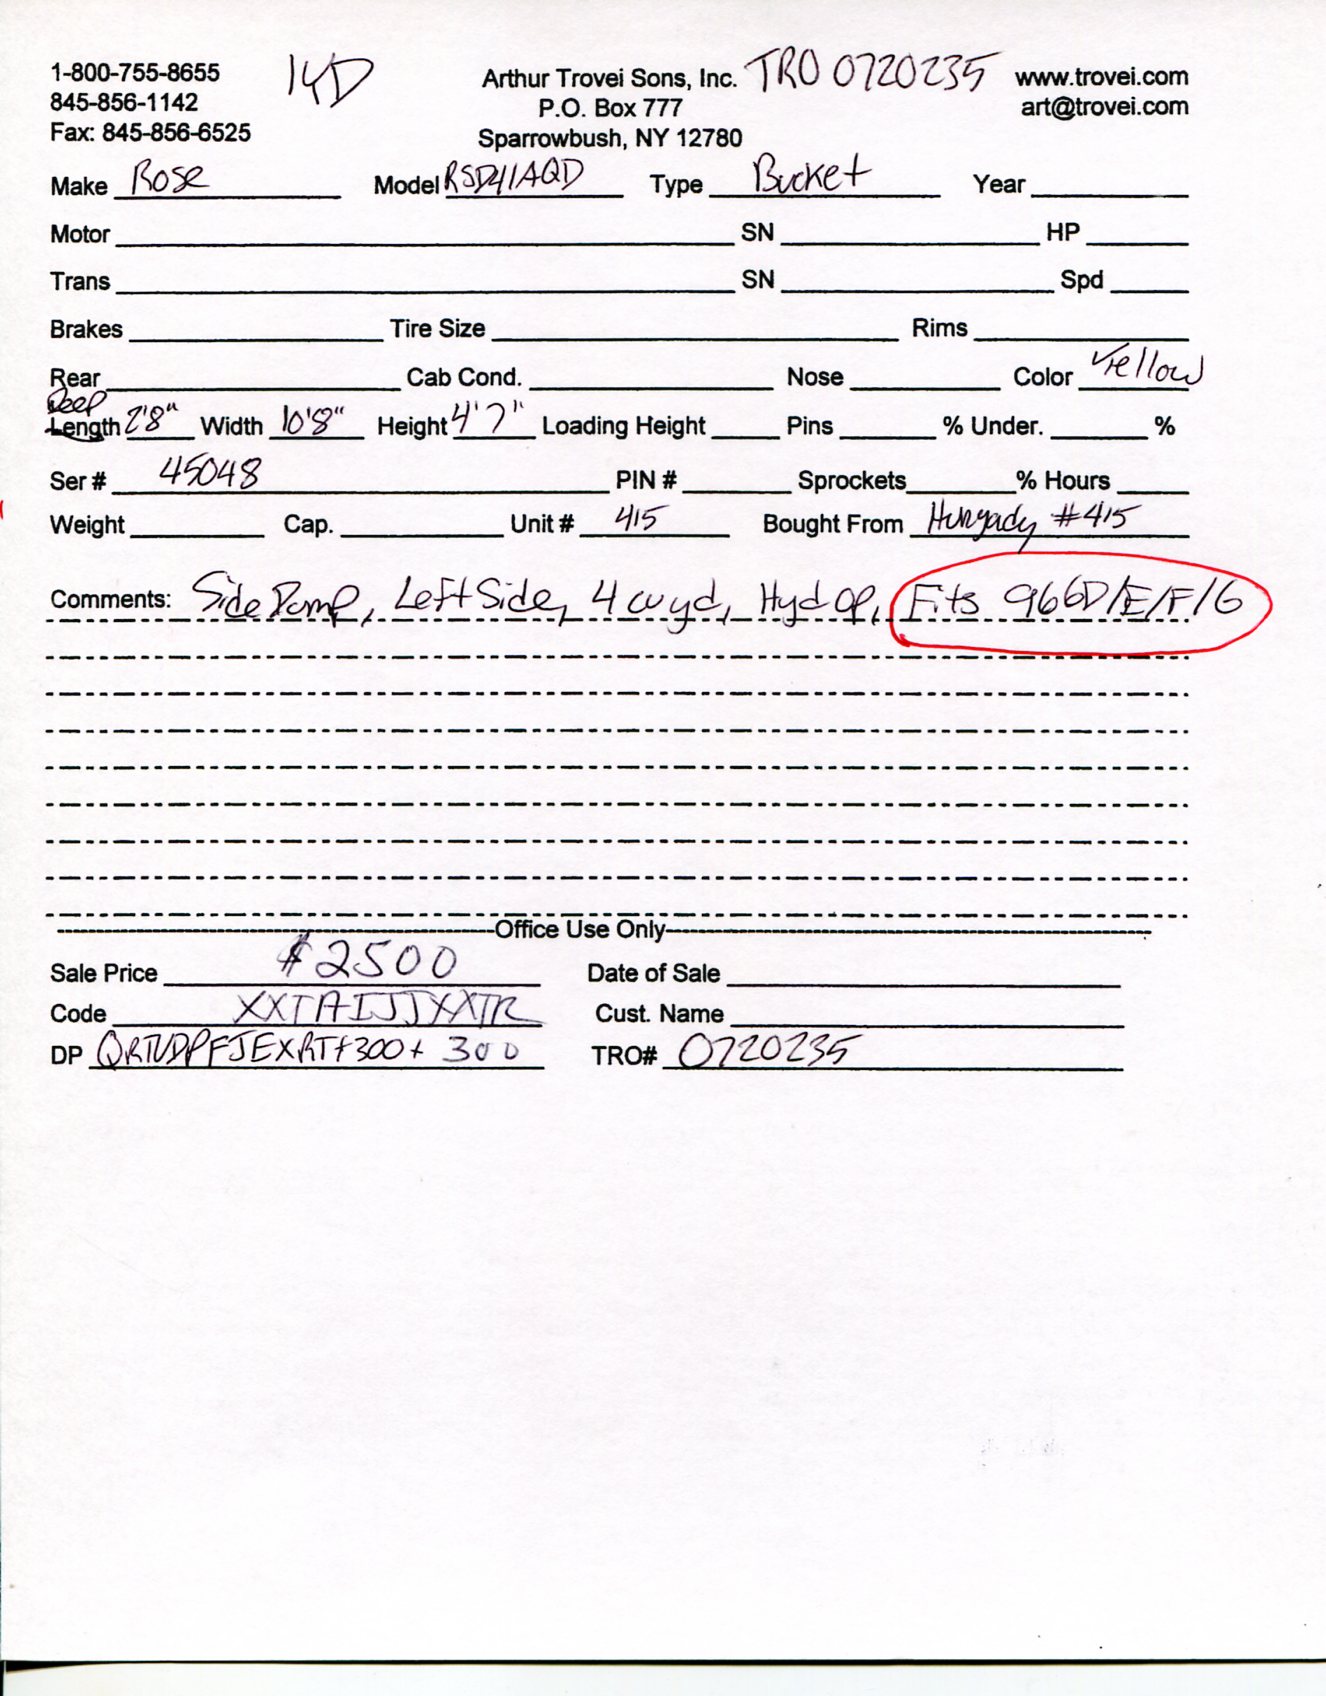 1-800-755-8655 14D Arthur Trovei Sons, Inc. TRO 0720235 www.trovei.com
845-856-1142 P.O. Box 777 art@trovei.com
Fax: 845-856-6525 Sparrowbush, NY 12780
Make Rose Model RSD41AQD Type Bucket Year
Motor SN HP
Trans SN Spd
Brakes Tire Size Rims
Rear Cab Cond. Nose Color Yellow
Deep
Length 2'8" Width 10'8" Height 4'7" Loading Height Pins % Under. %
Ser # 45048 PIN # Sprockets % Hours
Weight Cap. Unit # 415 Bought From Hungady #415
Comments: Side Dump, Left Side, 4 cuyd, Hyd op, Fits 966D/E/F/G
Office Use Only
Sale Price $2500 Date of Sale
Code XXTAIJJXXTR Cust. Name
DP QRTVDPFJEXRT+300+ 300 TRO# 0720235